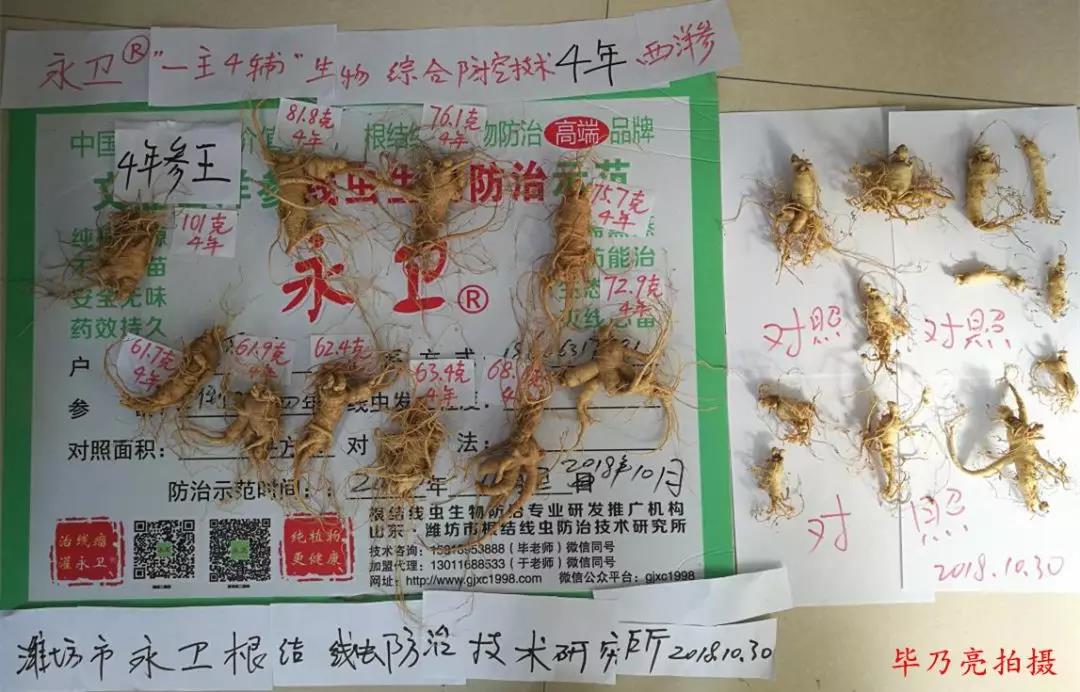 永卫® "一主4辅" 生物 综合防控技术 4年 西洋参
81.8克
4年
76.1克
4年
根结线
物防治 高端 品牌
中国
4年参王
线虫生
防治示范
101克
4年
75.7克
4年
防能治
72.9克
4年
安全无味
药效持久
永卫®
61.7克
4年
61.9克
4年
62.4克
4年
63.4克
4年
68.
户
方式:
参
四年
线虫发
对照面积:
方
对
法:
防治示范时间:
年
2018年10月
根结线虫生物防治专业研发推广机构
山东·潍坊市根结线虫防治技术研究所
治线瘤
灌永卫
纯植物
更健康
技术咨询:15315953888(毕老师)微信同号
加盟代理:13011688533(于老师)微信同号
网址:http://www.gjxc1998.com 微信公众平台:gjxc1998
对照 对照
对 照
2018.10.30
潍坊市永卫根结线虫防治技术研究所 2018.10.30
毕乃亮拍摄